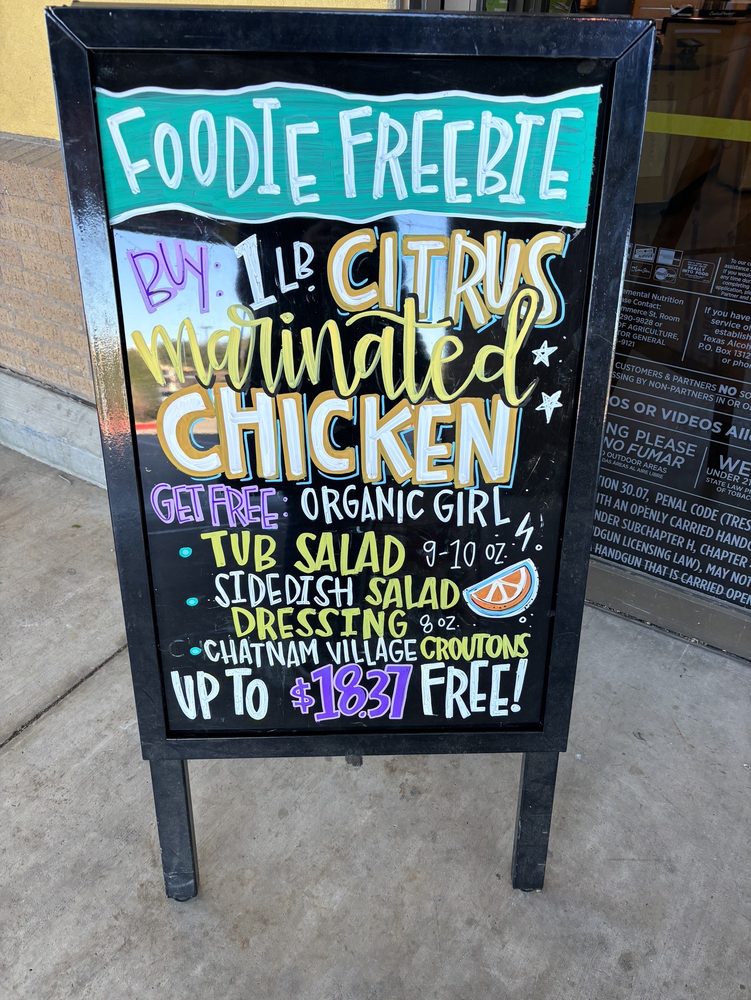 FOODIE FREEBIE
BUY: 1 LB. CITRUS
marinated
CHICKEN
GET FREE: ORGANIC GIRL
• TUB SALAD 9-10 OZ.
• SIDEDISH SALAD
DRESSING 8 OZ
• CHATNAM VILLAGE CROUTONS
UP TO $18.37 FREE!
emental Nutrition
ase Contact:
mmerce St, Room
290-9828 or
OF AGRICULTURE,
FOR GENERAL
-9121
If you have
service o
establish
Texas Alcoh
P.O. Box 1312
or phon
CUSTOMERS & PARTNERS NO SO
SSING BY NON-PARTNERS IN OR O
OS OR VIDEOS All
NG PLEASE
NO FUMAR
OUTDOOR AREAS
WE
UNDER 21
STATE LAW P
OF TOBA
TION 30.07, PENAL CODE (TRES
ITH AN OPENLY CARRIED HAND
NDER SUBCHAPTER H, CHAPTER
DGUN LICENSING LAW), MAY NO
HANDGUN THAT IS CARRIED OPEN